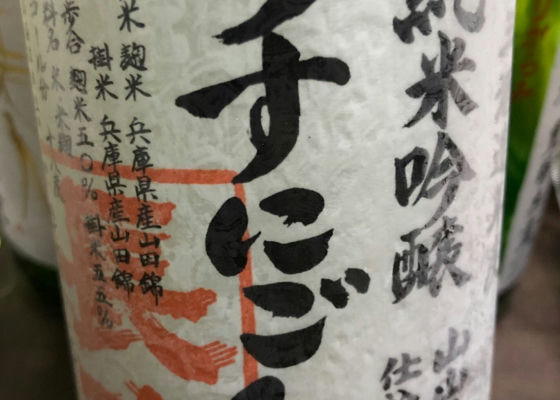 純米吟醸
山
仕
すにご
米 麹米 兵庫県産山田錦
掛米 兵庫県産山田錦
歩合 麹米五〇% 掛米五五%
米 米麹